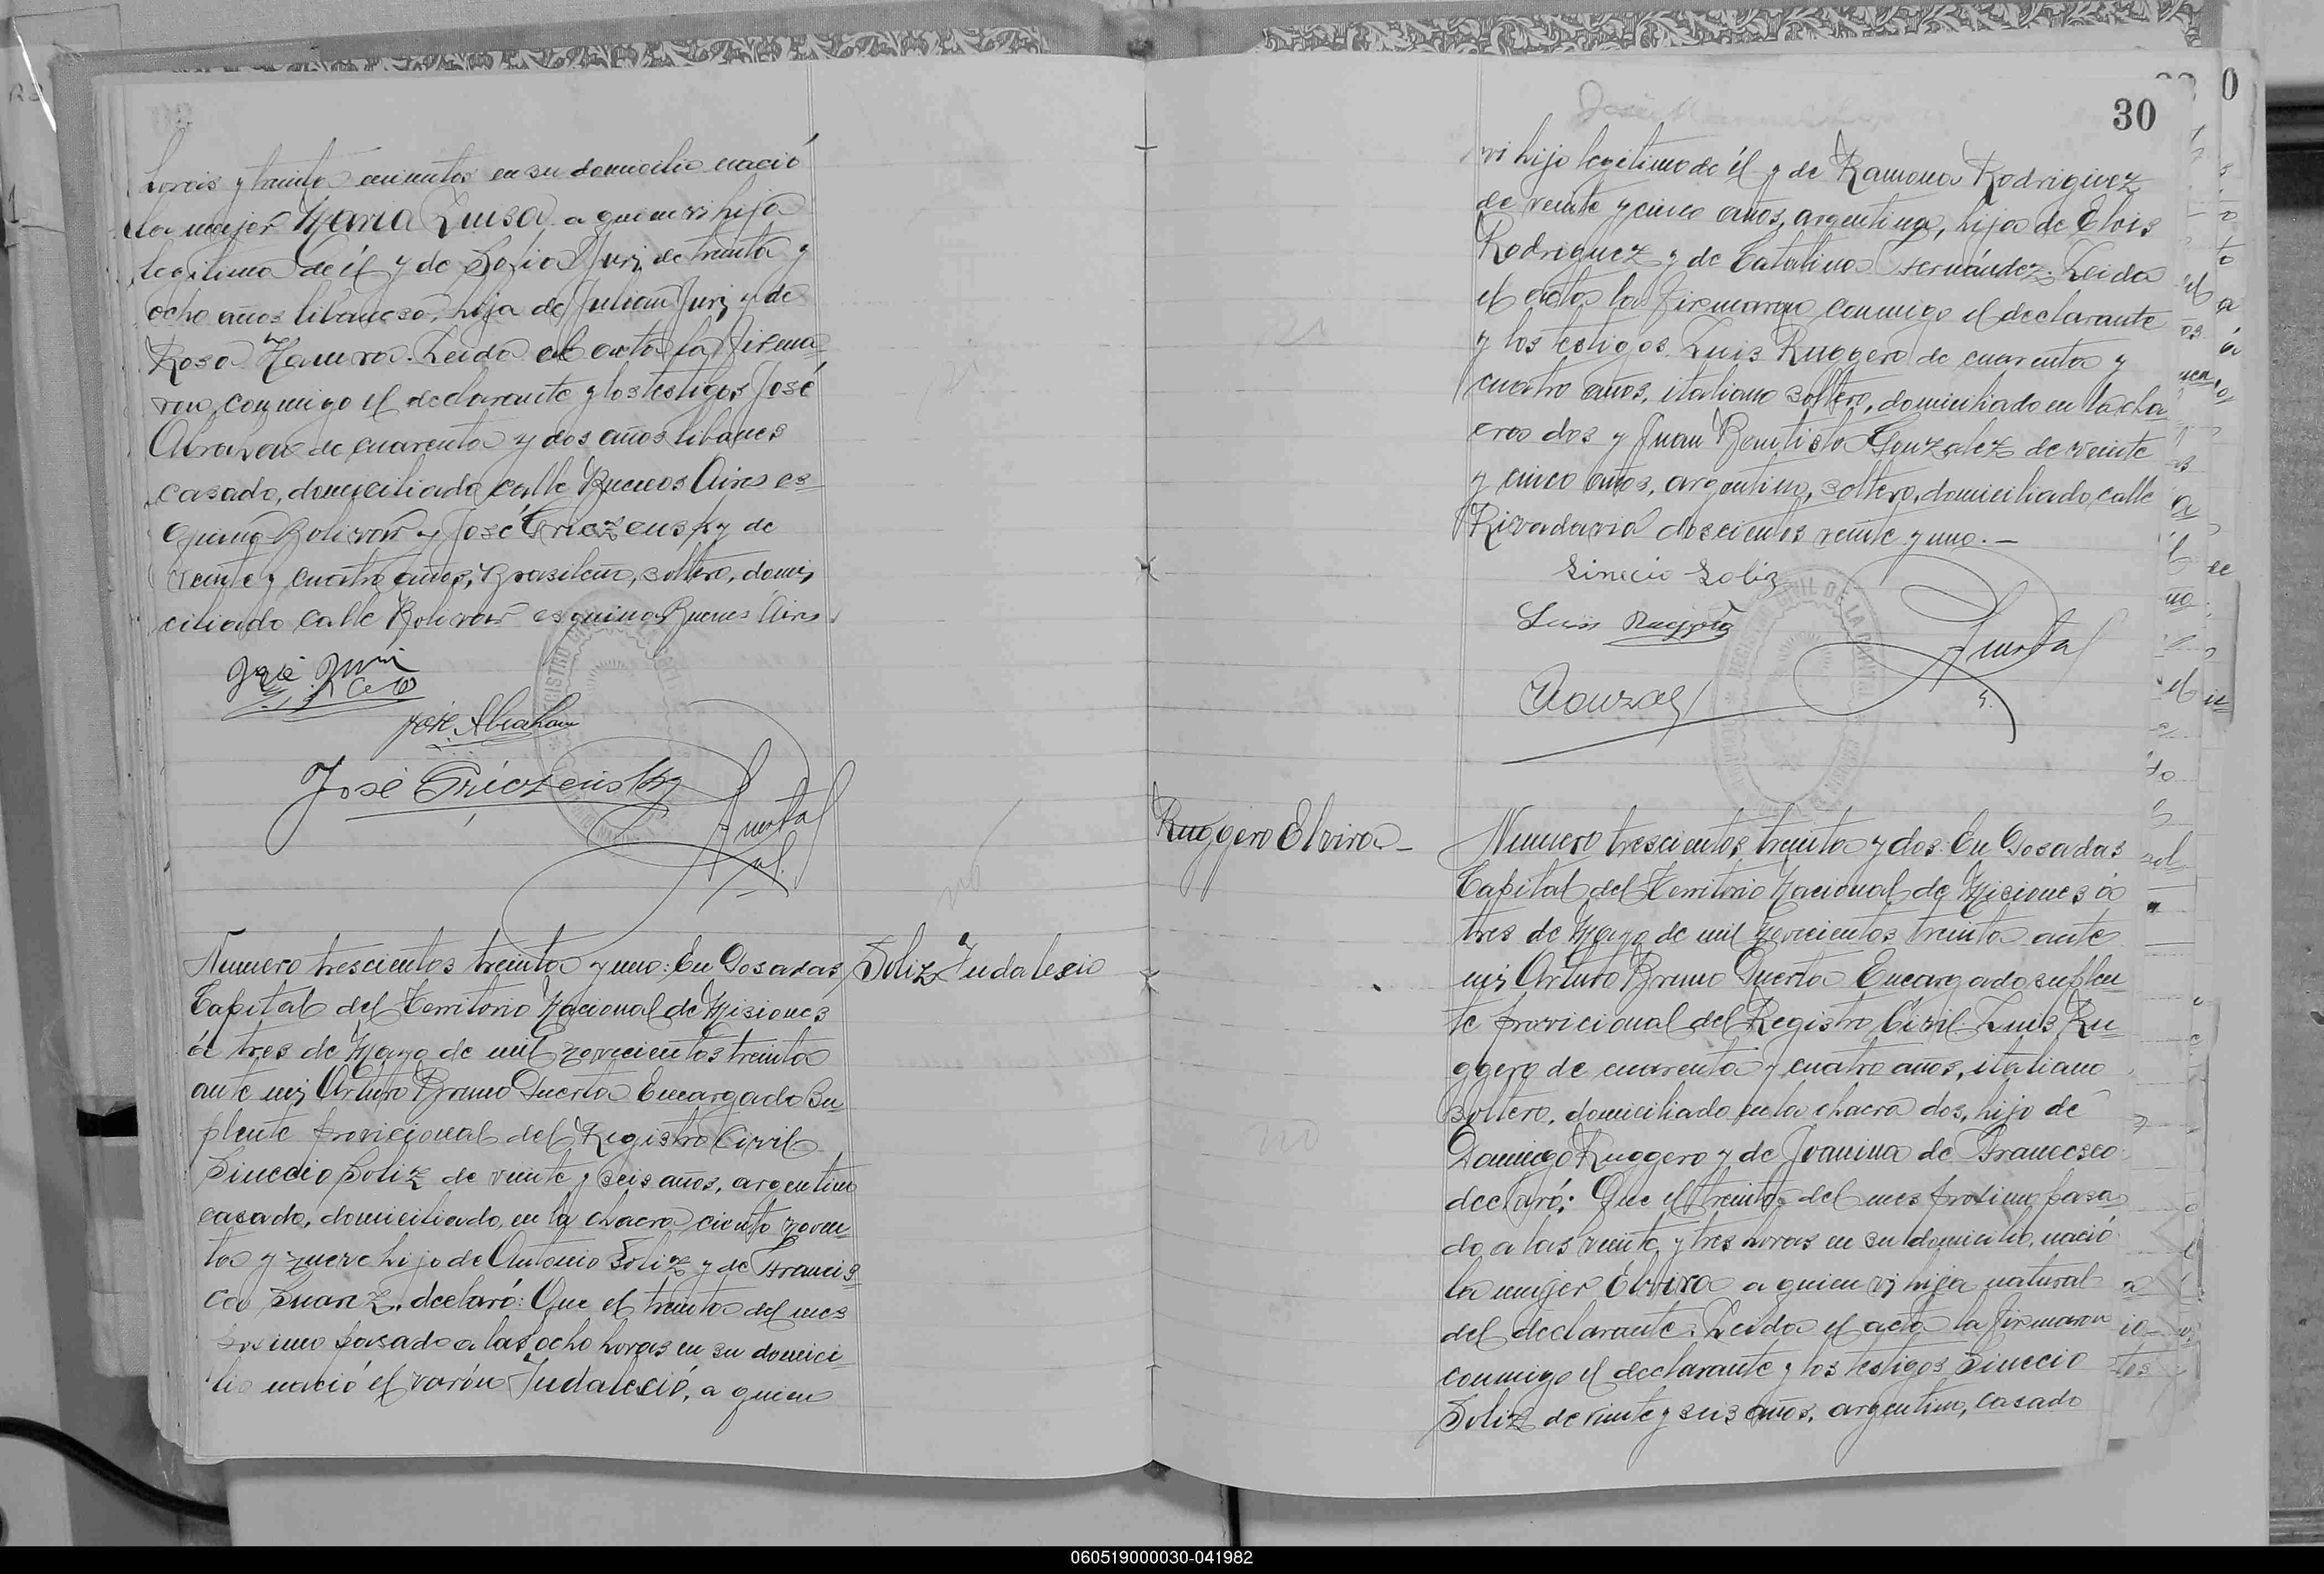 horas y treinta minutos en su domicilio nació
la mujer Maria Luisa a quien vi hija
legitima de él y de Sofia Juri, de treinta y
ocho años libanesa, hija de Julian Juri y de
Rosa. Leida el acta la firma-
ron conmigo el declarante y los testigos José
Abraham de cuarenta y dos años libanes
casado, domiciliado calle Buenos Aires es-
quina Bolivar y José Griczensky de
veinte y cuatro años, Brasileño, soltero, domi-
ciliado calle Bolivar esquina Buenos Aires.
José Juri
José Abraham
José Griczensky
Puerta
Numero trescientos treinta y uno: En Posadas
Soliz Indalecio
Capital del Territorio Nacional de Misiones
á tres de Mayo de mil novecientos treinta
ante mi, Arturo Bruno Puerta Encargado Su-
plente provicional del Registro Civil
Sinecio Soliz de veinte y seis años, argentino
casado, domiciliado en la chacra ciento noven-
ta y nueve hijo de Antonio Soliz y de Francis-
ca Suarez, declaró: Que el treinta del mes
proximo pasado a las ocho horas en su domici-
lio nació el varón Indalecio, a quien
30
vi hijo legitimo de él y de Ramona Rodriguez
de veinte y cinco años, argentina, hija de Elois
Rodriguez y de Catalina Fernández. Leida
el acta la firmaron conmigo el declarante
y los testigos Luis Ruggero de cuarenta y
cuatro años, italiano soltero, domiciliado en la cha-
cra dos y Juan Bautista Gonzalez de veinte
y cinco años, argentino, soltero, domiciliado calle
Rivadavia doscientos veinte y uno.—
Sinecio Soliz
Luis Ruggero
Puerta
Gonzalez
Ruggero Elvira—
Numero trescientos treinta y dos: En Posadas
Capital del Territorio Nacional de Misiones á
tres de Mayo de mil novecientos treinta ante
mi, Arturo Bruno Puerta Encargado suplen-
te provicional del Registro Civil Luis Ru-
ggero de cuarenta y cuatro años, italiano
soltero, domiciliado en la chacra dos, hijo de
Domingo Ruggero y de Joanina de Francesco
declaró: Que el treinta del mes proximo pasa-
do a las veinte y tres horas en su domicilio, nació
la mujer Elvira a quien vi hija natural
del declarante. Leida el acta la firmaron
conmigo el declarante y los testigos Sinecio
Soliz de veinte y seis años, argentino, casado
060519000030-041982